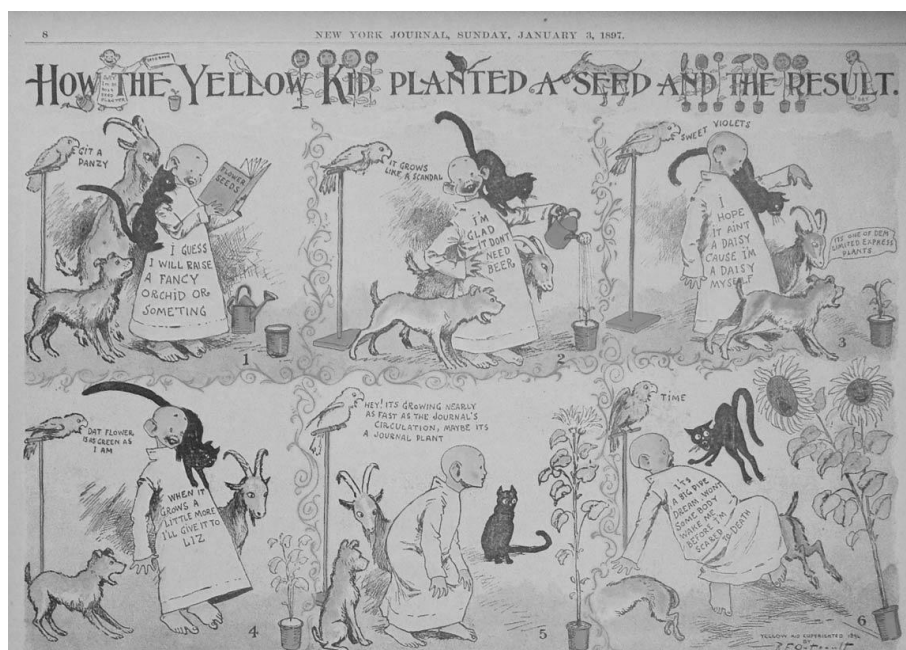 8
NEW YORK JOURNAL, SUNDAY, JANUARY 3, 1897.
HOW THE YELLOW KID PLANTED A SEED AND THE RESULT.
GIT A
PANZY
FLOWER
SEEDS
I GUESS
I WILL RAISE
A FANCY
ORCHID OR
SOMETING
1
IT GROWS
LIKE A SCANDAL
I'M
GLAD
IT DONT
NEED
BEER
2
SWEET VIOLETS
I
HOPE
IT AINT
A DAISY
CAUSE IM
A DAISY
MYSELF
ITS ONE OF DEM
LIMITED EXPRESS
PLANTS
3
DAT FLOWER
IS AS GREEN AS
I AM
WHEN IT
GROWS A
LITTLE MORE
I'LL GIVE IT TO
LIZ
4
HEY! ITS GROWING NEARLY
AS FAST AS THE JOURNAL'S
CIRCULATION, MAYBE ITS
A JOURNAL PLANT
5
TIME
ITS
A BIG PIPE
DREAM. WONT
SOME BODY
WAKE ME
BEFORE I'M
SCARED
TO DEATH
6
YELLOW KID COPYRIGHTED 1896
BY
R.F. Outcault